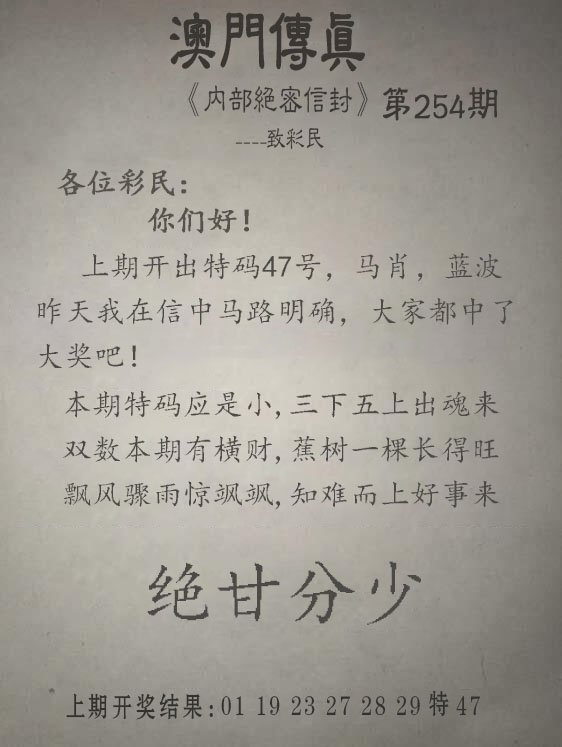 澳門傳眞
《内部絕密信封》第254期
----致彩民
各位彩民：
你们好！
上期开出特码47号，马肖，蓝波
昨天我在信中马路明确，大家都中了
大奖吧！
本期特码应是小,三下五上出魂来
双数本期有横财,蕉树一棵长得旺
飘风骤雨惊飒飒,知难而上好事来
绝甘分少
上期开奖结果:01 19 23 27 28 29特47